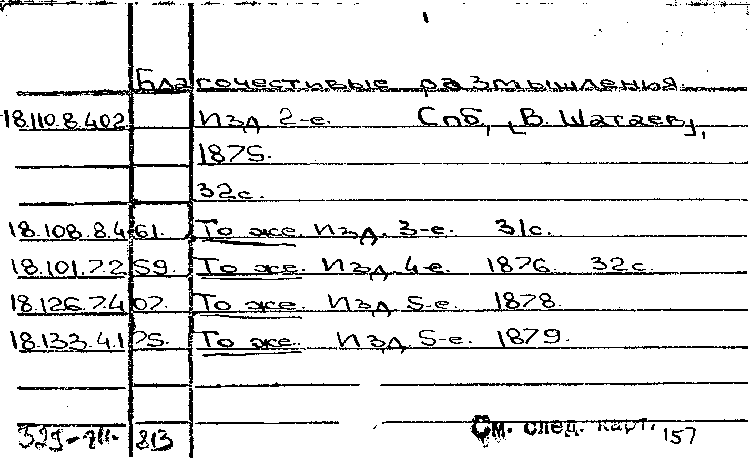 Благочестивые размышления.
18.110.8.402 Изд. 2-е. Спб, [В. Шатаев],
1875.
32с.
18.108.8.461. То же. Изд. 3-е. 31с.
18.101.7.259. То же. Изд. 4-е. 1876. 32с.
18.126.7.407. То же. Изд. 5-е. 1878.
18.133.4.175. То же. Изд. 5-е. 1879.
813 См. след. карт. 157